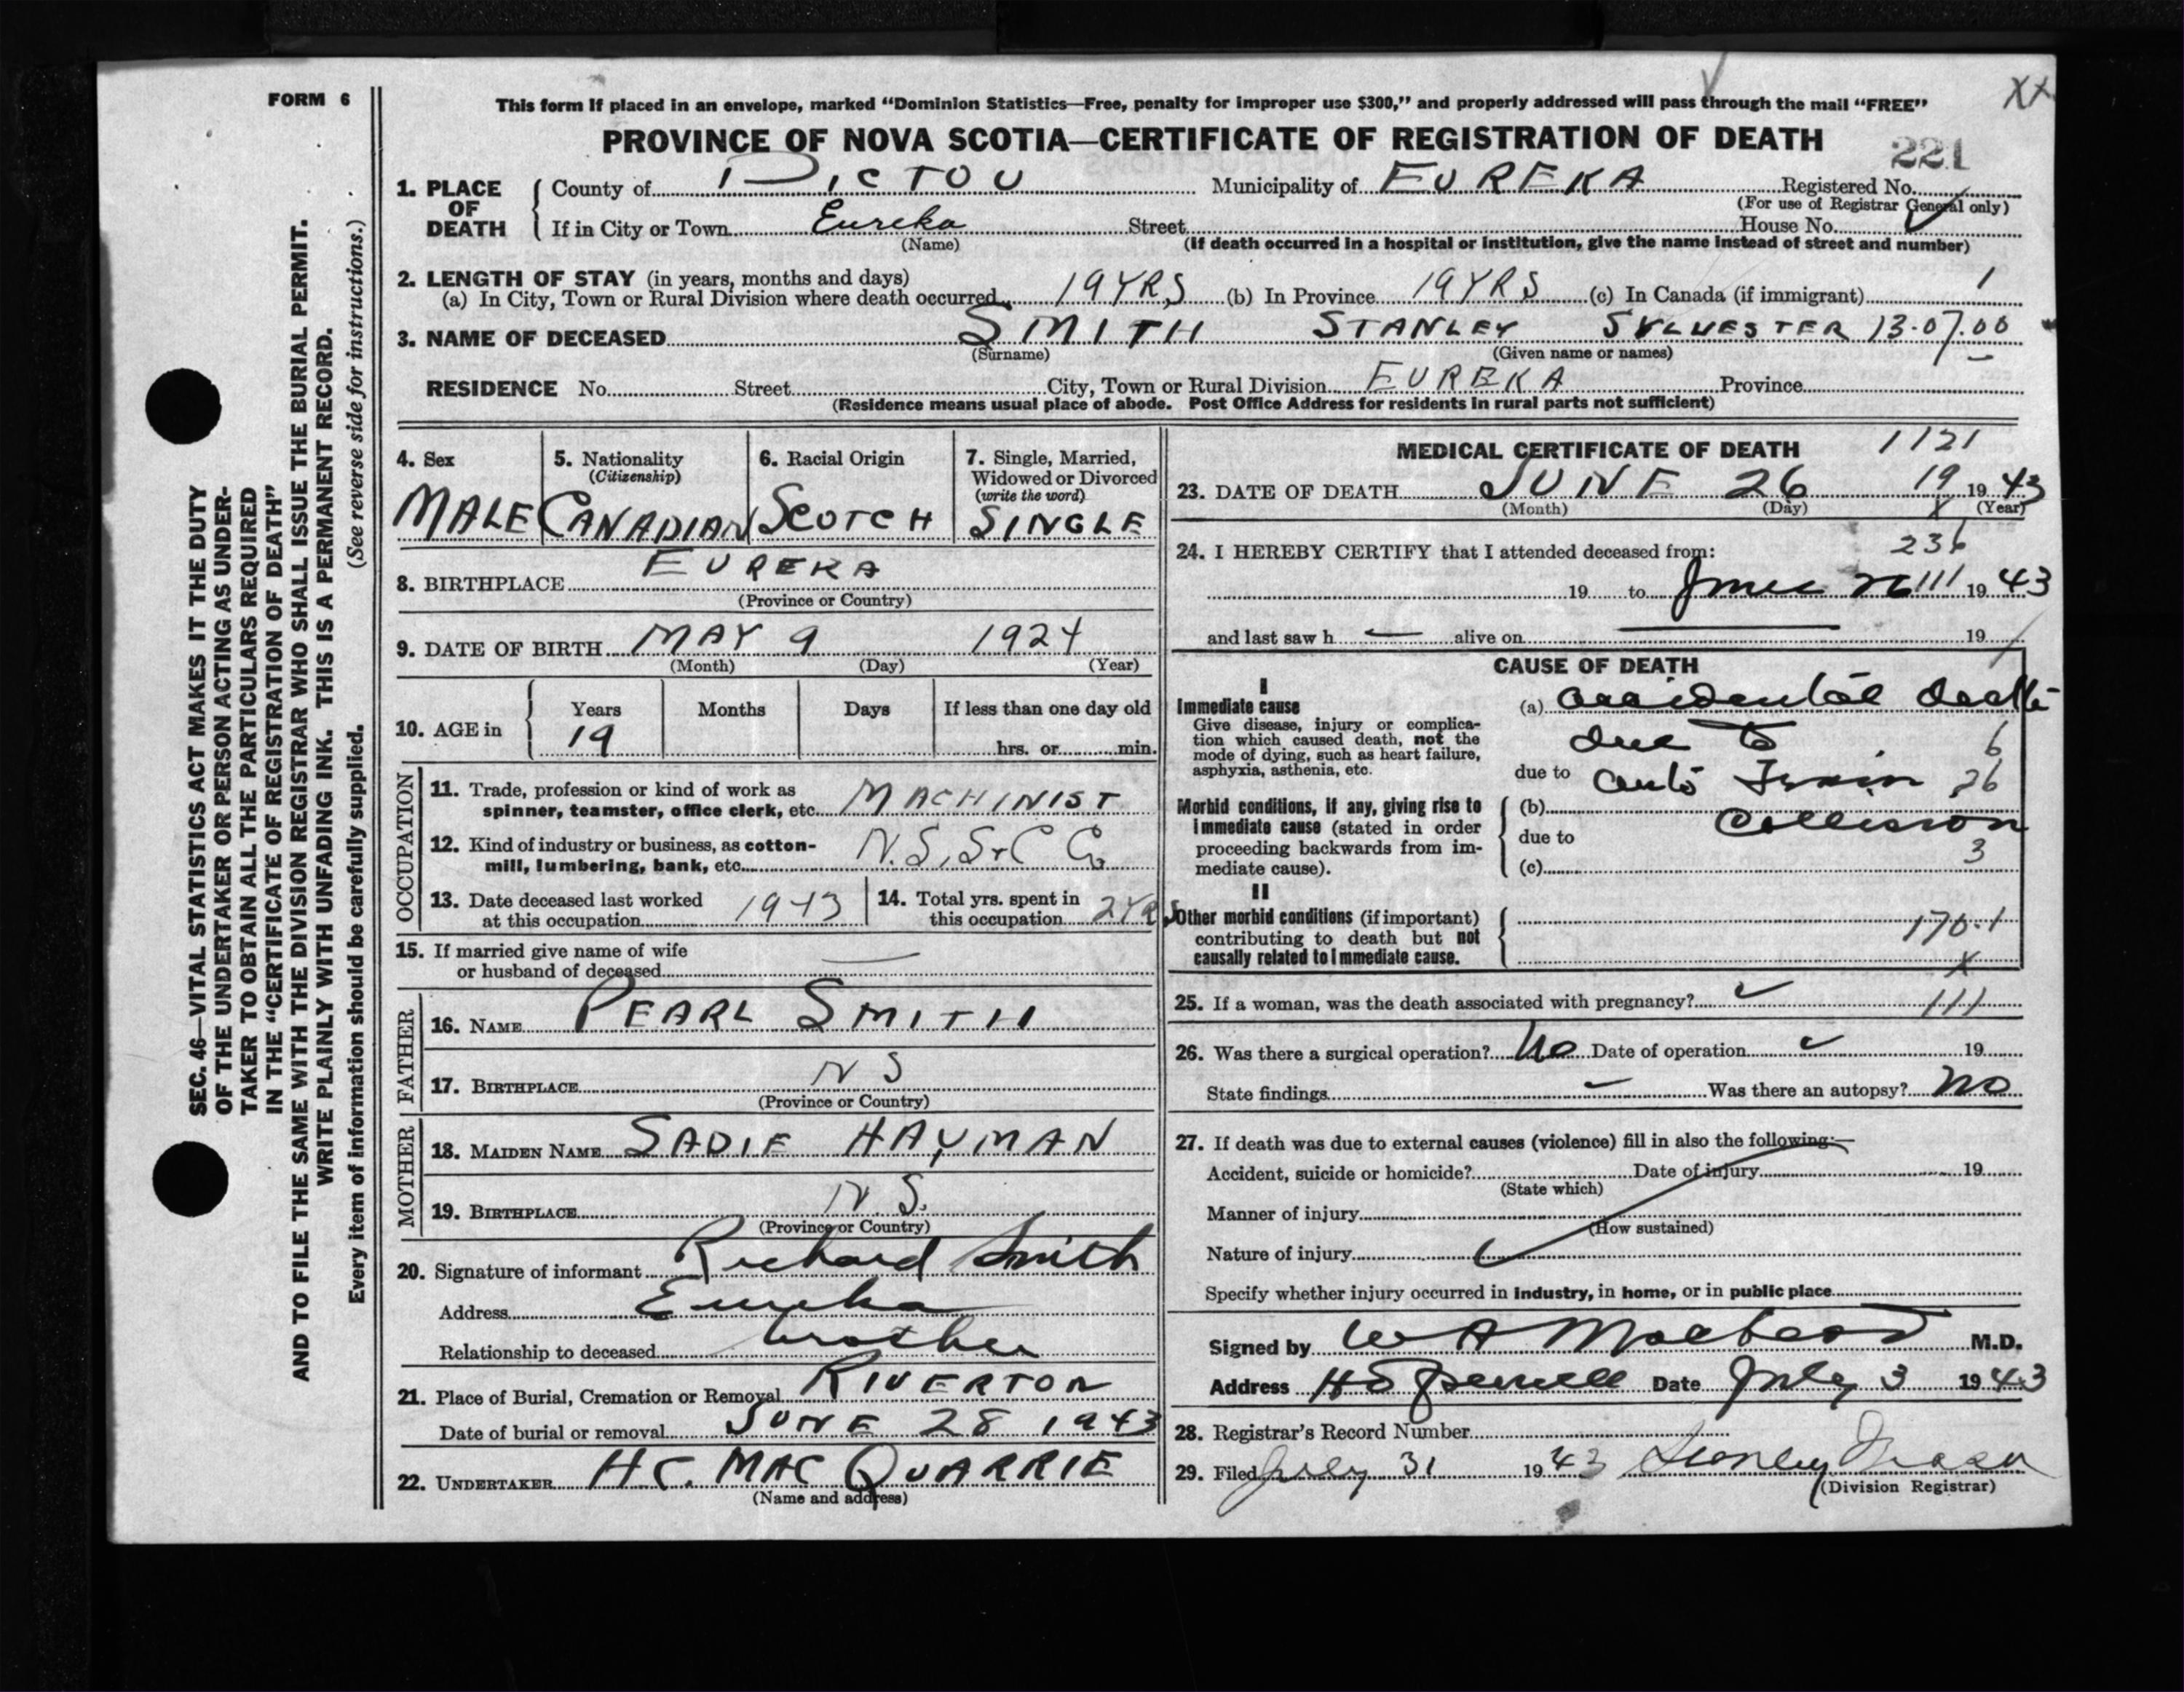 FORM 6
SEC. 46—VITAL STATISTICS ACT MAKES IT THE DUTY
OF THE UNDERTAKER OR PERSON ACTING AS UNDER-
TAKER TO OBTAIN ALL THE PARTICULARS REQUIRED
IN THE "CERTIFICATE OF REGISTRATION OF DEATH"
AND TO FILE THE SAME WITH THE DIVISION REGISTRAR WHO SHALL ISSUE THE BURIAL PERMIT.
WRITE PLAINLY WITH UNFADING INK. THIS IS A PERMANENT RECORD.
Every item of information should be carefully supplied. (See reverse side for instructions.)
This form if placed in an envelope, marked "Dominion Statistics—Free, penalty for improper use $300," and properly addressed will pass through the mail "FREE"
XX
PROVINCE OF NOVA SCOTIA—CERTIFICATE OF REGISTRATION OF DEATH
221
1. PLACE OF DEATH County of PICTOU Municipality of EUREKA Registered No.
(For use of Registrar General only)
If in City or Town Eureka Street House No.
(Name) (If death occurred in a hospital or institution, give the name instead of street and number)
2. LENGTH OF STAY (in years, months and days)
(a) In City, Town or Rural Division where death occurred 19 YRS (b) In Province 19 YRS (c) In Canada (if immigrant)
3. NAME OF DECEASED SMITH STANLEY SYLVESTER 13.07.00
(Surname) (Given name or names)
RESIDENCE No. Street City, Town or Rural Division EUREKA Province
(Residence means usual place of abode. Post Office Address for residents in rural parts not sufficient)
4. Sex 5. Nationality 6. Racial Origin 7. Single, Married,
(Citizenship) Widowed or Divorced
(write the word)
MALE CANADIAN SCOTCH SINGLE
8. BIRTHPLACE EUREKA
(Province or Country)
9. DATE OF BIRTH MAY 9 1924
(Month) (Day) (Year)
10. AGE in Years Months Days If less than one day old
19 hrs. or min.
OCCUPATION
11. Trade, profession or kind of work as
spinner, teamster, office clerk, etc. MACHINIST
12. Kind of industry or business, as cotton-
mill, lumbering, bank, etc. N.S.S+C Co
13. Date deceased last worked
at this occupation 1943
14. Total yrs. spent in
this occupation 2 YRS
15. If married give name of wife
or husband of deceased —
FATHER
16. NAME PEARL SMITH
17. BIRTHPLACE N S
(Province or Country)
MOTHER
18. MAIDEN NAME SADIE HAYMAN
19. BIRTHPLACE N. S.
(Province or Country)
20. Signature of informant Richard Smith
Address Eureka
Relationship to deceased brother
21. Place of Burial, Cremation or Removal RIVERTON
Date of burial or removal JUNE 28 1943
22. UNDERTAKER H C. MAC QUARRIE
(Name and address)
MEDICAL CERTIFICATE OF DEATH 1121
23. DATE OF DEATH JUNE 26 19 1943
(Month) (Day) (Year)
24. I HEREBY CERTIFY that I attended deceased from: 236
19 to June 26 111 1943
and last saw h — alive on — 19
CAUSE OF DEATH
I
Immediate cause
Give disease, injury or complica-
tion which caused death, not the
mode of dying, such as heart failure,
asphyxia, asthenia, etc.
(a) accidental death
due to 6
due to auto Train 26
Morbid conditions, if any, giving rise to
immediate cause (stated in order
proceeding backwards from im-
mediate cause).
(b) Collision
due to
(c) 3
II
Other morbid conditions (if important)
contributing to death but not
causally related to immediate cause.
170.1
X
25. If a woman, was the death associated with pregnancy? 111
26. Was there a surgical operation? No Date of operation 19
State findings Was there an autopsy? No
27. If death was due to external causes (violence) fill in also the following:—
Accident, suicide or homicide? Date of injury 19
(State which)
Manner of injury
(How sustained)
Nature of injury
Specify whether injury occurred in industry, in home, or in public place
Signed by W A MacLeod M.D.
Address Date July 3 1943
28. Registrar's Record Number
29. Filed July 31 1943 Stanley Fraser
(Division Registrar)